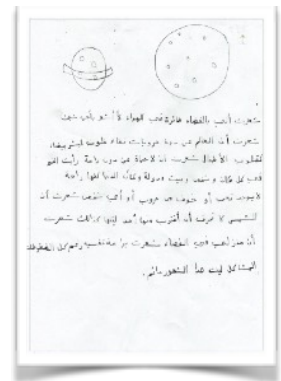 شعرت أنني بالفضاء طائرة في الهواء لا أشعر بأي شيء
شعرت أن العالم من دون حروب نقاء قلوب البشر بيضاء
كقلوب الأطفال شعرت أن لا حياة من دون راحة رأيت القمر
في كل مكان وكأن الدنيا كلها راحة
لا يوجد تعب أو خوف من حروب أو أي شخص شعرت أن
الشمس لا تحرق أن أقترب منها أحد لكنها كذلك شعرت
أن من راحة نفسية رغم كل الضغوطات
المشاكل ليت هذا الشعور دائم.